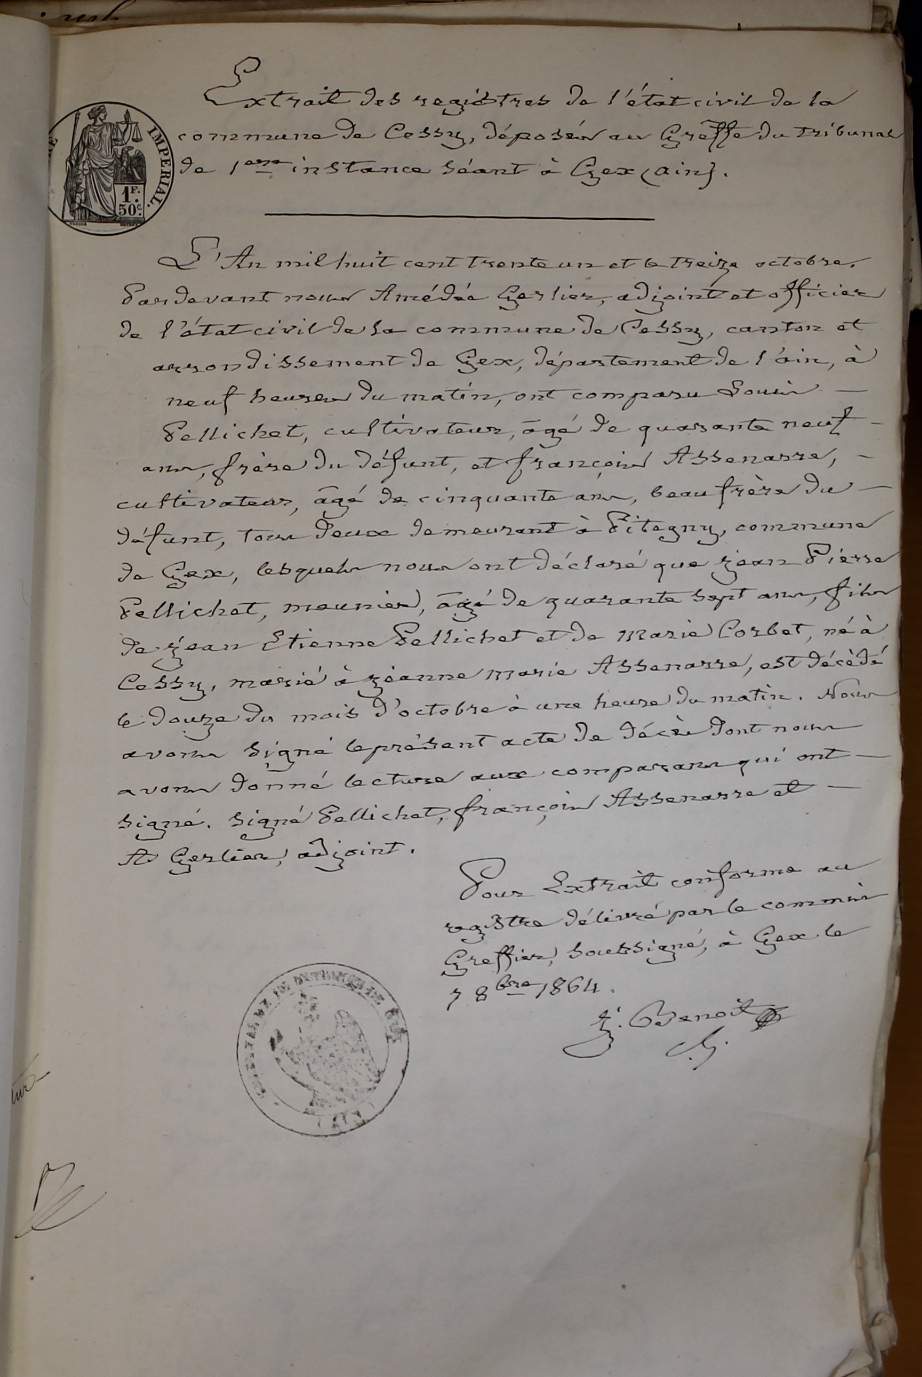 Extrait des registres de l'état civil de la
commune de Cessy, déposés au Greffe du tribunal
de 1ere instance séant à Gex (ain).
IMPERIAL
1 F.
50 c
L'An mil huit cent trente un et le treize octobre.
Pardevant nous Amédée Gerlier, adjoint et officier
de l'état civil de la commune de Cessy, canton et
arrondissement de Gex, département de l'ain, à
neuf heures du matin, ont comparu Louis —
Pellichet, cultivateur, âgé de quarante neuf —
ans, frère du défunt, et françois Assenarre, —
cultivateur, âgé de cinquante ans, beau frère du —
défunt, tous deux demeurant à Pitegny, commune
de Gex, lesquels nous ont déclaré que jean Pierre
Pellichet, meunier, âgé de quarante sept ans, fils
de jean Etienne Pellichet et de Marie Corbet, né à
Cessy, marié à jeanne Marie Assenarre, est décédé
le douze du mois d'octobre à une heure du matin. Nous
avons signé le présent acte de décès dont nous
avons donné lecture aux comparans qui ont —
signé. Signé Pellichet, françois Assenarre et —
A Gerlier, adjoint.
Pour Extrait conforme au
registre délivré par le commis
Greffier, soussigné, à Gex le
7 8bre 1864.
J. Benoit
(AIN)